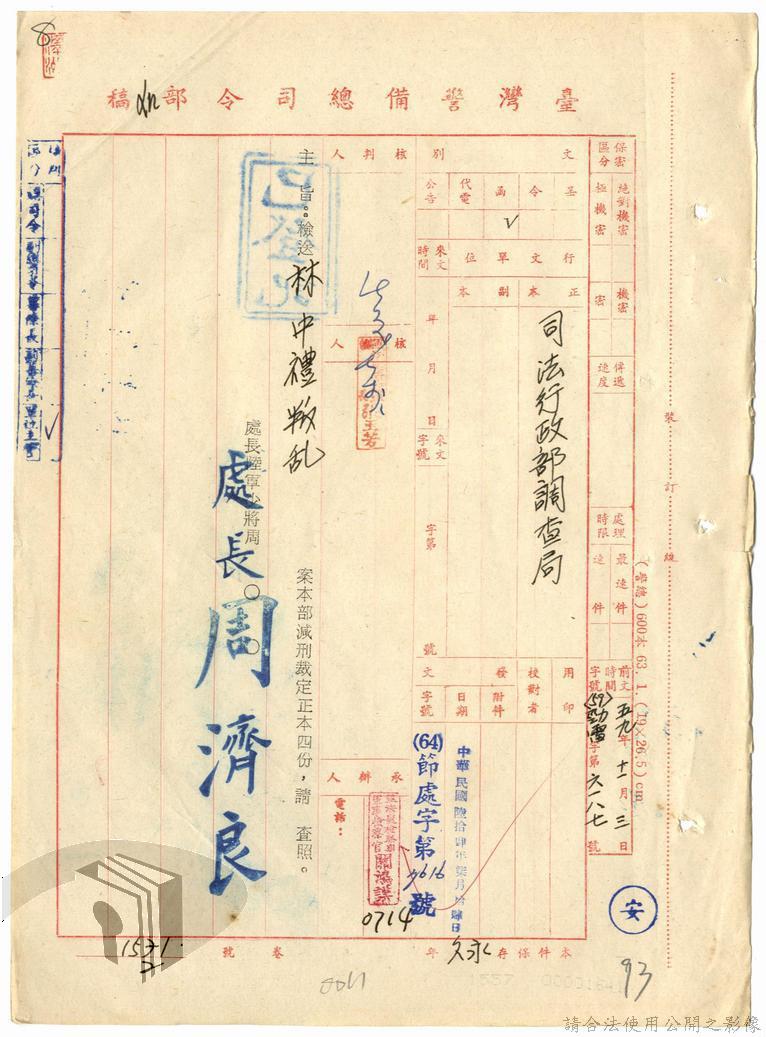 臺灣警備總司令部稿
保密區分
絕對機密
極機密
機密
密
傳遞速度
處理時限
最速件
速件
前文時間字號
五九年十一月三日
(59)勁需字第六一八七號
文別
呈
令
函
✓
代電
公告
行文單位
正本
副本
司法行政部調查局
來文時間
年
月
日
來文字號
字第
號
發文
用印
校對者
附件
日期
字號
中華民國陸拾肆年柒月拾肆日
(64)節處字第7616號
核判人
核人
承辦人
電話:
0714
主旨:檢送林中禮叛乱
案本部減刑裁定正本四份,請 查照。
處長陸軍少將周〇〇
處長周濟良
已登記
本件保存
永久
年
卷號
1571
2
裝訂線
(警總)600本 63.1.(19×26.5)cm
安
93
8
請合法使用公開之影像